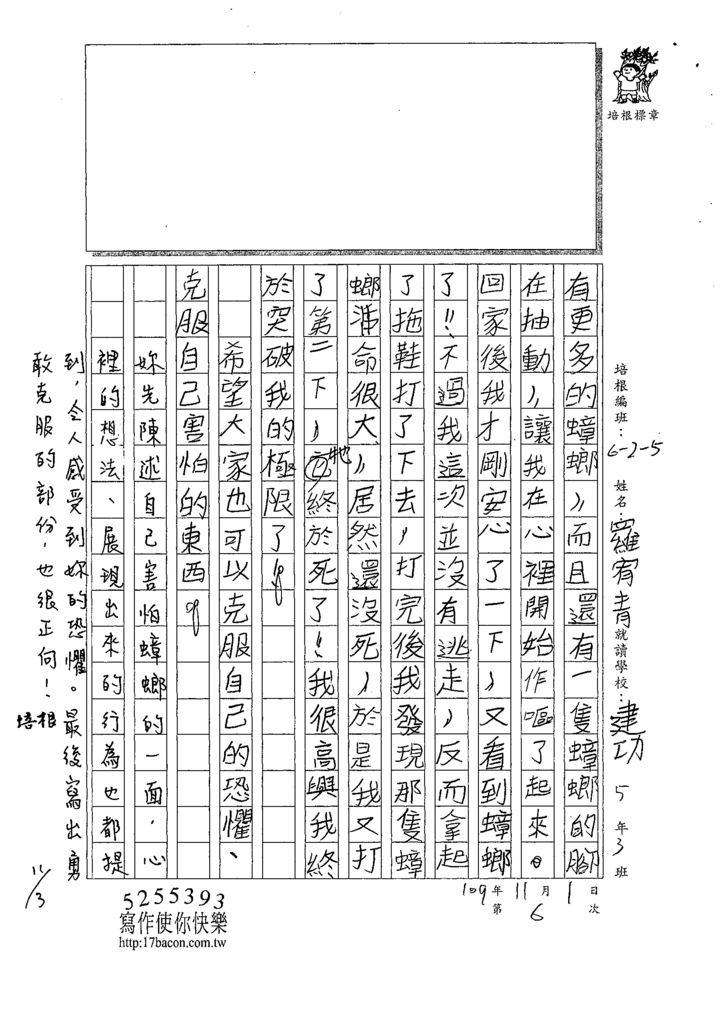 培根標章
培根編班：6-2-5 姓名：羅宥青 就讀學校：建功 5年3班
有更多的蟑螂，而且還有一隻蟑螂的腳
在抽動，讓我在心裡開始作嘔了起來。
回家後我才剛安心了一下，又看到蟑螂
了！！不過我這次並沒有逃走，反而拿起
了拖鞋打了下去，打完後我發現那隻蟑
螂命很大，居然還沒死，於是我又打
了第二下，牠終於死了！我很高興我終
於突破我的極限了！
希望大家也可以克服自己的恐懼、
克服自己害怕的東西。
妳先陳述自己害怕蟑螂的一面，心
裡的想法、展現出來的行為也都提
到，令人感受到妳的恐懼。最後寫出勇
敢克服的部份，也很正向！
培根
11/3
109年11月1日
第6次
5255393
寫作使你快樂
http:17bacon.com.tw